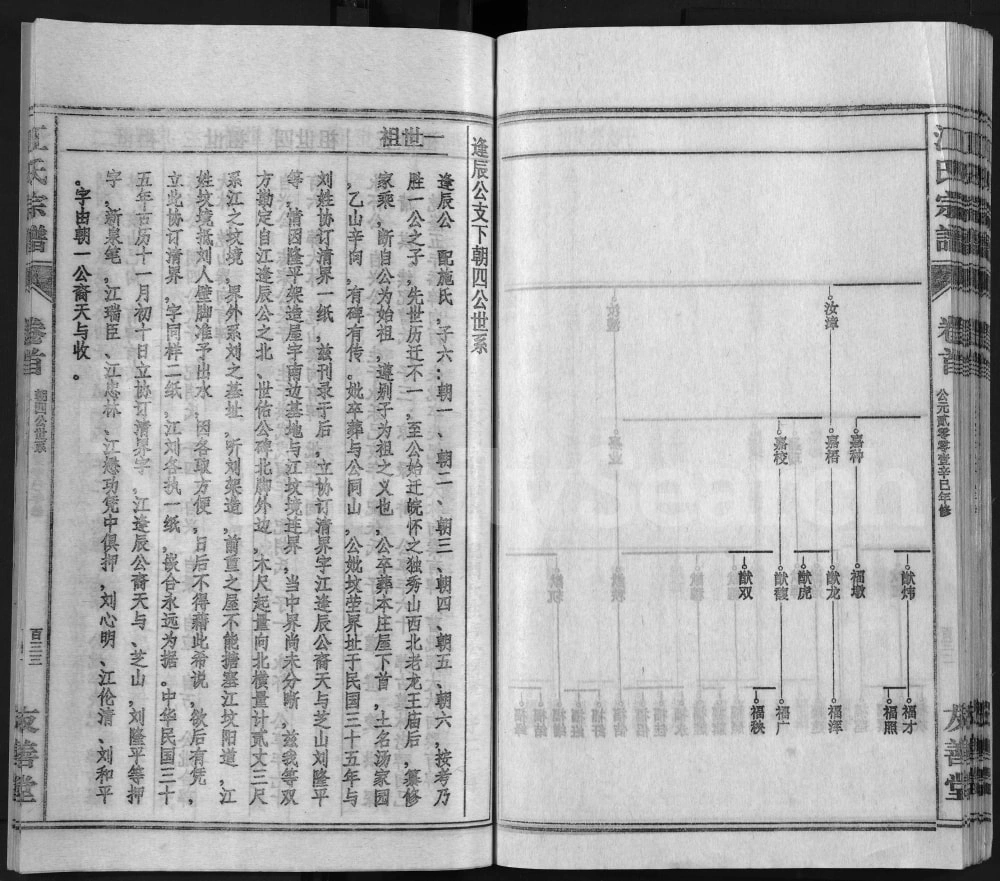 江氏宗谱
卷首
公元贰零零壹辛巳年修
友善堂
汝漳
嘉种
嘉梧
嘉校
猷炜
福墩
猷龙
猷虎
猷馥
猷双
福才
福照
福浑
福广
福秧
逢辰公支下朝四公世系
一世祖
逢辰公 配施氏，子六：朝一、朝二、朝三、朝四、朝五、朝六，按考乃
胜一公之子，先世历迁不一，至公始迁皖怀之独秀山西北老龙王庙后，纂修
家乘，断自公为始祖，遵别子为祖之义也，公卒葬本庄屋下首，土名汤家园
，乙山辛向，有碑有传。妣卒葬与公同山，公妣坟茔界址于民国三十五年与
刘姓协订清界一纸，兹刊录于后，立协订清界字江逢辰公裔天与芝山刘隆平
等，情因隆平架造屋宇南边基地与江坟境连界，当中界尚未分晰，兹我等双
方勘定自江逢辰公之北、世佑公碑北脚外边，木尺起量向北横量计贰丈三尺
系江之坟境，界外系刘之基址，听刘架造，前重之屋不能搪塞江坟阳道，江
姓坟境抵刘人壁脚准予出水，因各取方便，日后不得藉此希说，欲后有凭，
立此协订清界，字同样二纸，江刘各执一纸，嵌合永远为据。中华民国三十
五年古历十一月初十日立协订清界字，江逢辰公裔天与、芝山，刘隆平等押
字，新泉笔，江瑞臣、江忠林、江懋功凭中俱押，刘心明、江伦清、刘和平
。字由朝一公裔天与收。
江氏宗谱
卷首
朝四公世系
百三三
友善堂